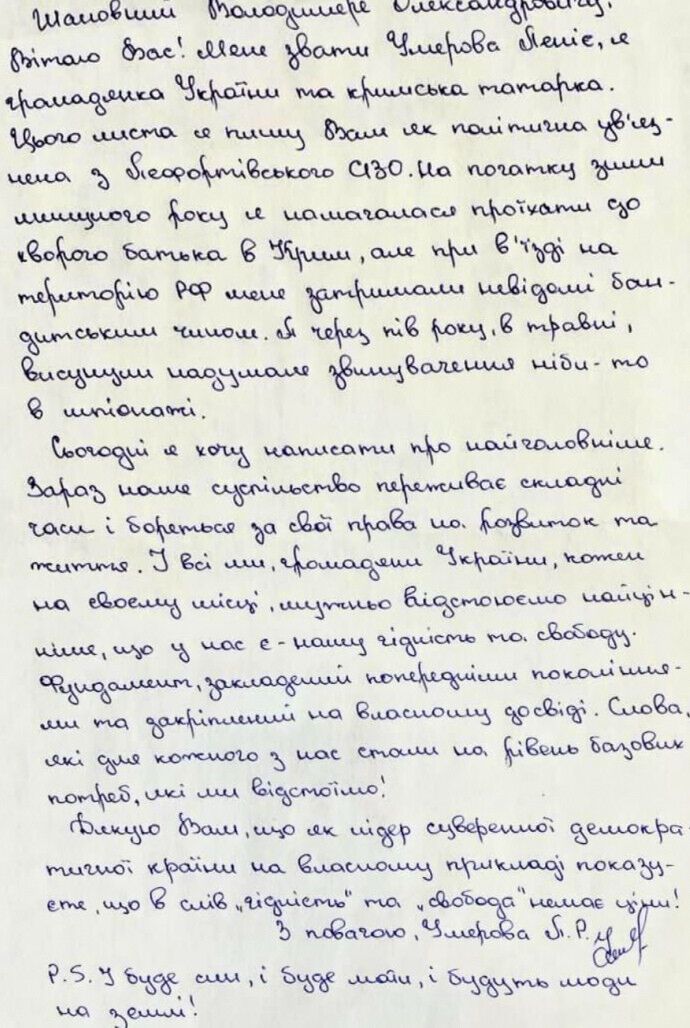 Шановний Володимире Олександровичу,
Вітаю Вас! Мене звати Умерова Леніє, я
громадянка України та кримська татарка.
Цього листа я пишу Вам як політична ув'яз-
нена з Лефортівського СІЗО. На початку зими
минулого року я намагалася проїхати до
хворого батька в Крим, але при в'їзді на
територію РФ мене затримали невідомі бан-
дитським чином. А через пів року, в травні,
висунули надумане звинувачення ніби-то
в шпіонажі.
Сьогодні я хочу написати про найголовніше.
Зараз наше суспільство переживає складні
часи і бореться за свої права на розвиток та
життя. І всі ми, громадяни України, кожен
на своєму місці, мужньо відстоюємо найцін-
ніше, що у нас є - нашу гідність та свободу.
Фундамент, закладений попередніми покоління-
ми та закріплений на власному досвіді. Слова,
які для кожного з нас стали на рівень базових
потреб, які ми відстоїмо!
Дякую Вам, що як лідер суверенної демокра-
тичної країни на власному прикладі показу-
єте, що в слів „гідність" та „свобода" немає ціни!
З повагою, Умерова Л.Р.
P.S. І буде син, і буде мати, і будуть люди
на землі!